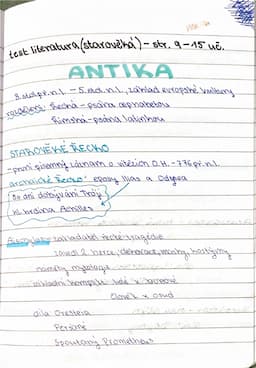 test literatura (starověká) - str. 9-15 uč.
ANTIKA
8. stol. př. n. l. - 5. stol. n. l., základ evropské kultury
rozdělení: Řecká - psána alphabetou
Římská - psána latinkou
STAROVĚKÉ ŘECKO
- první písemný záznam o vítězích O.H. - 776 př. n. l.
archaické Řecko: eposy Ilias a Odysea
dobývání Tróje
hl. hrdina Achilles
zakladatel řecké tragédie
zavedl 2. herce, dekorace, masky, kostýmy
náměty mytologie
základní konflikt: lidé x bohové
člověk x osud
díla Oresteia
Peršané
Spoutaný Prometheus